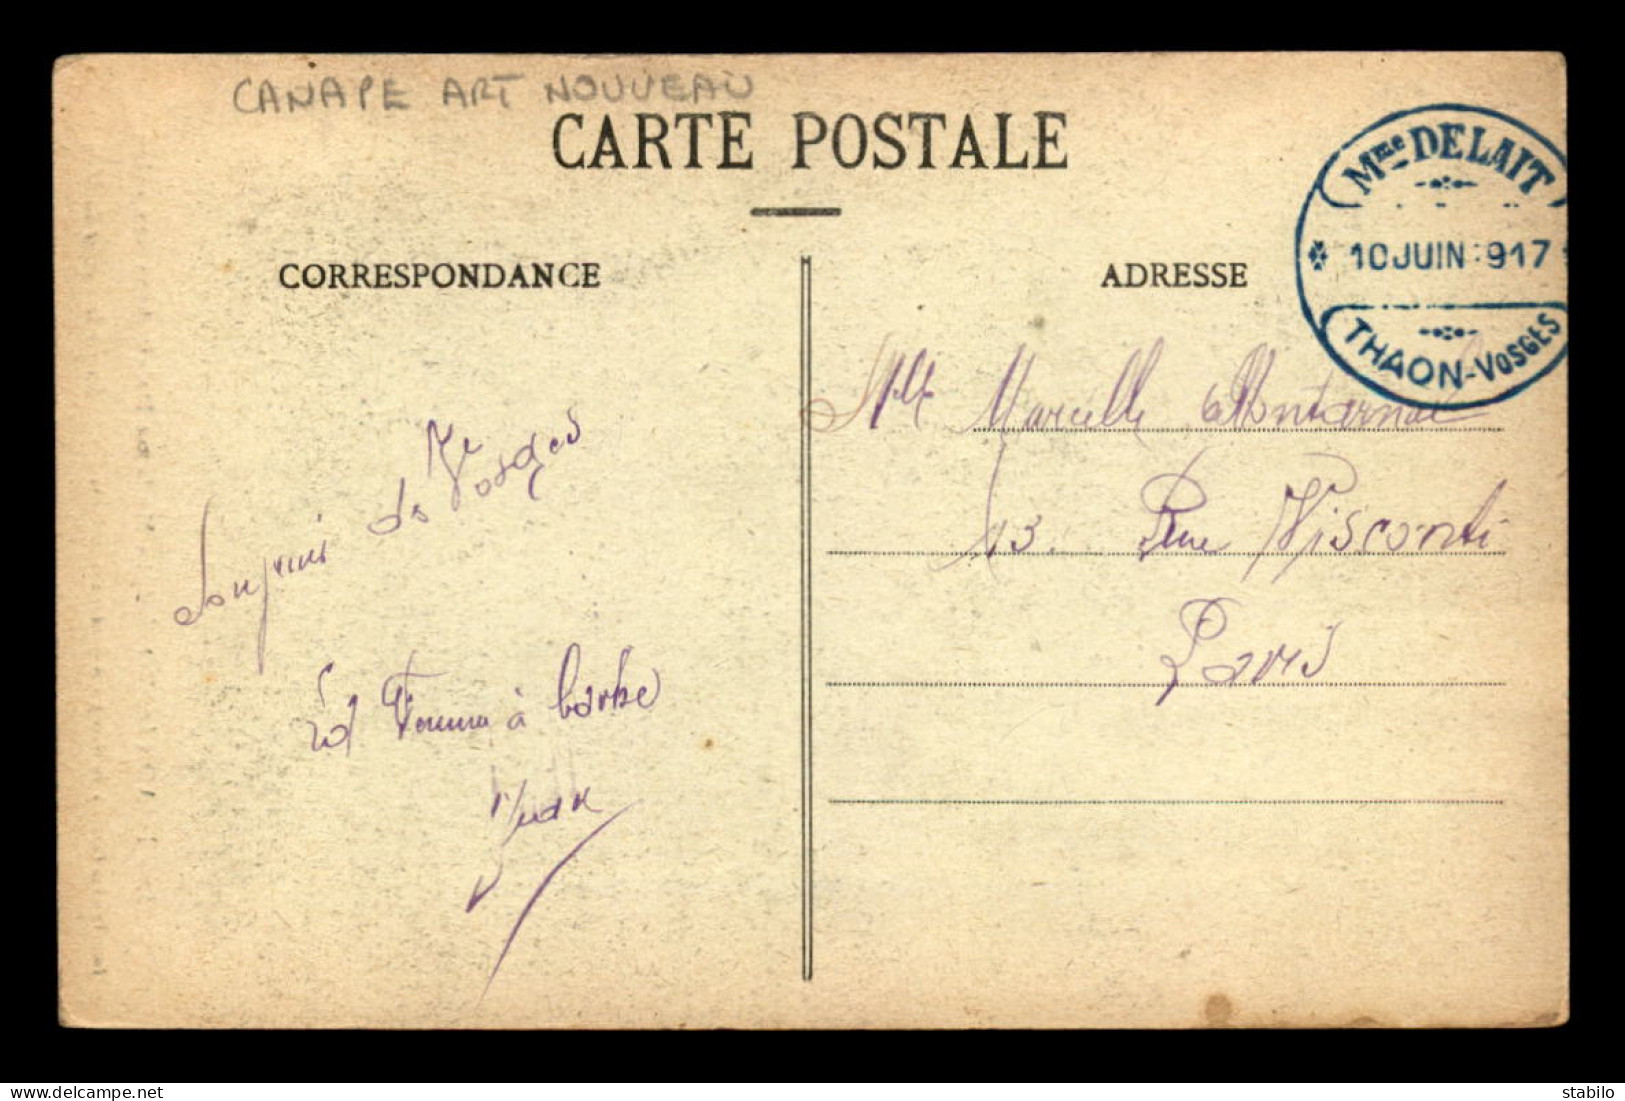 CANAPE ART NOUVEAU
CARTE POSTALE
CORRESPONDANCE
ADRESSE
Mme DELAIT
10 JUIN 917
THAON-VOSGES
Souvenir des Vosges
et Femme à barbe
Mlle Marcelle
13. Rue Visconti
Paris
stabilo